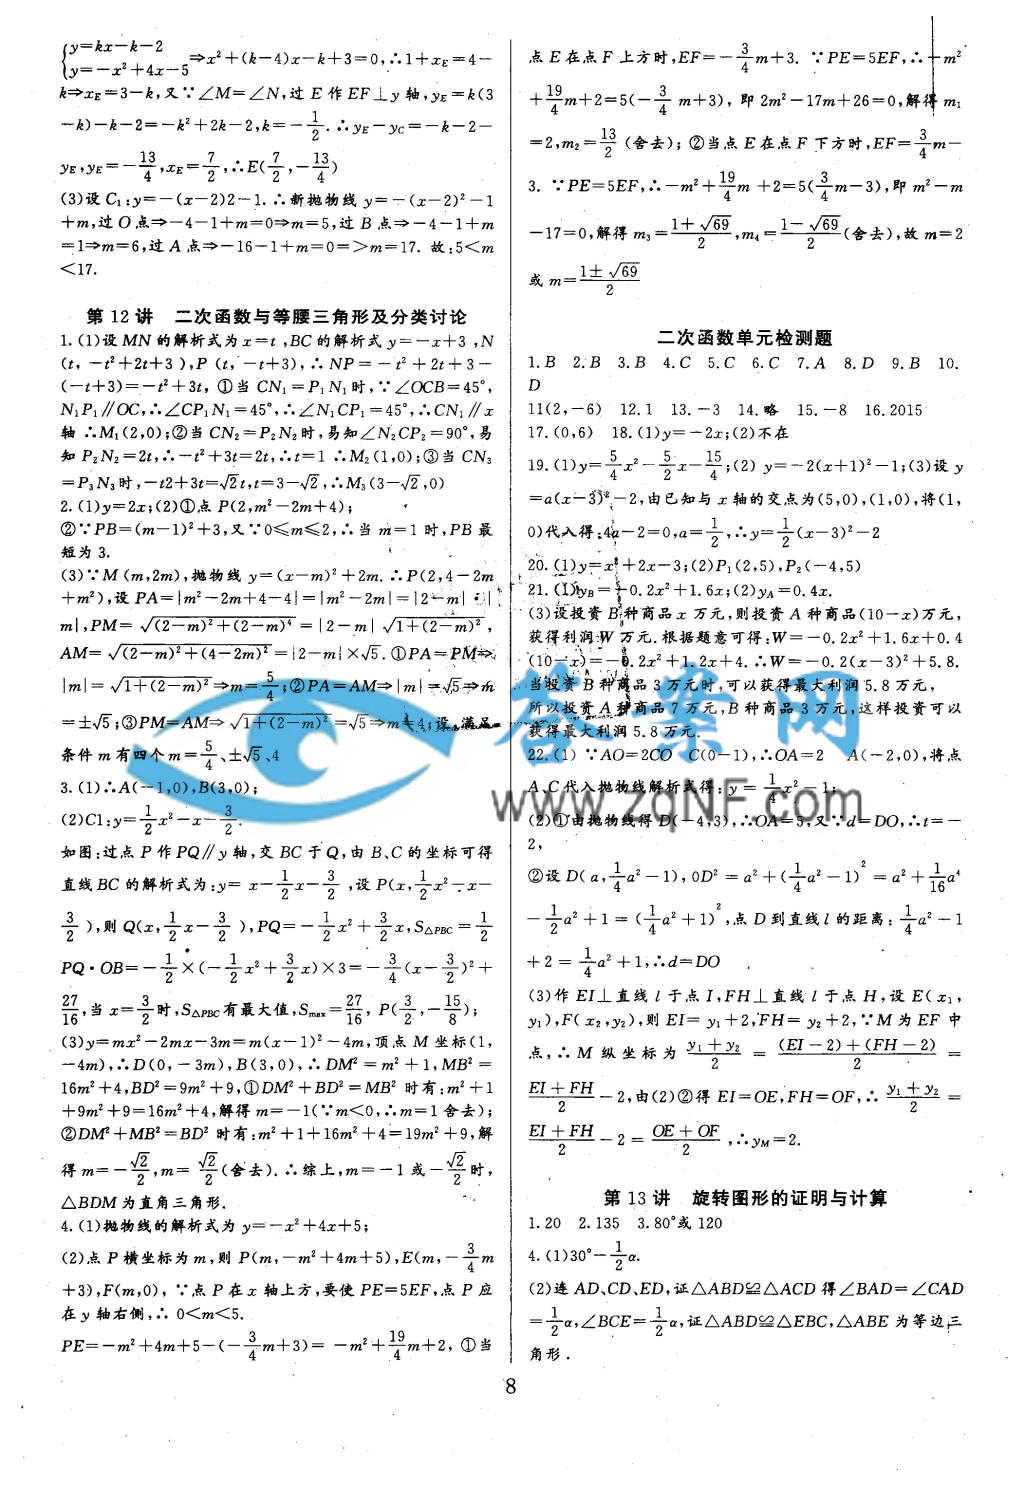 {y=kx-k-2
y=-x²+4x-5 ⇒x²+(k-4)x-k+3=0,∴1+x_E=4-
k⇒x_E=3-k,又∵∠M=∠N,过 E 作 EF⊥y 轴,y_E=k(3
-k)-k-2=-k²+2k-2,k=-1/2.∴y_E-y_C=-k-2-
y_E,y_E=-13/4,x_E=7/2,∴E(7/2,-13/4)
(3)设 C₁:y=-(x-2)2-1.∴新抛物线 y=-(x-2)²-1
+m,过 O 点⇒-4-1+m=0⇒m=5,过 B 点⇒-4-1+m
=1⇒m=6,过 A 点⇒-16-1+m=0=>m=17. 故:5<m
<17.
第 12 讲 二次函数与等腰三角形及分类讨论
1.(1)设 MN 的解析式为 x=t ,BC 的解析式 y=-x+3 ,N
(t, -t²+2t+3 ),P (t, -t+3),∴NP=-t²+2t+3-
(-t+3)=-t²+3t, ①当 CN₁=P₁N₁时,∵∠OCB=45°,
N₁P₁∥OC,∴∠CP₁N₁=45°,∴∠N₁CP₁=45°,∴CN₁∥x
轴 ∴M₁(2,0);②当 CN₂=P₂N₂时,易知∠N₂CP₂=90°,易
知 P₂N₂=2t,∴-t²+3t=2t,∴t=1 ∴M₂(1,0);③当 CN₃
=P₃N₃时,-t2+3t=√2t,t=3-√2,∴M₃(3-√2,0)
2.(1)y=2x;(2)①点 P(2,m²-2m+4);
②∵PB=(m-1)²+3,又∵0≤m≤2,∴当 m=1 时,PB 最
短为 3.
(3)∵M(m,2m),抛物线 y=(x-m)²+2m.∴P(2,4-2m
+m²),设 PA=|m²-2m+4-4|=|m²-2m|=|2-m|·|
m|,PM=√(2-m)²+(2-m)⁴=|2-m|√1+(2-m)²,
AM=√(2-m)²+(4-2m)²=|2-m|×√5.①PA=PM⇒
|m|=√1+(2-m)²⇒m=5/4;②PA=AM⇒|m|=√5⇒m
=±√5;③PM=AM⇒√1+(2-m)²=√5⇒m=4;设,满足
条件 m 有四个 m=5/4、±√5、4
3.(1)∴A(-1,0),B(3,0);
(2)C1:y=1/2x²-x-3/2.
如图:过点 P 作 PQ∥y 轴,交 BC 于 Q,由 B、C 的坐标可得
直线BC 的解析式为:y= x-1/2x-3/2 ,设 P(x,1/2x²-x-
3/2),则 Q(x,1/2x-3/2),PQ=-1/2x²+3/2x,S△PBC=1/2
PQ·OB=-1/2×(-1/2x²+3/2x)×3=-3/4(x-3/2)²+
27/16,当 x=3/2时,S△PBC有最大值,Smax=27/16, P(3/2,-15/8);
(3)y=mx²-2mx-3m=m(x-1)²-4m,顶点 M 坐标(1,
-4m),∴D(0,-3m),B(3,0),∴DM²=m²+1,MB²=
16m²+4,BD²=9m²+9,①DM²+BD²=MB² 时有:m²+1
+9m²+9=16m²+4,解得 m=-1(∵m<0,∴m=1 舍去);
②DM²+MB²=BD² 时有:m²+1+16m²+4=19m²+9,解
得 m=-√2/2,m=√2/2(舍去).∴综上,m=-1 或-√2/2时,
△BDM 为直角三角形.
4.(1)抛物线的解析式为 y=-x²+4x+5;
(2)点 P 横坐标为 m,则 P(m,-m²+4m+5),E(m,-3/4m
+3),F(m,0), ∵点 P 在 x 轴上方,要使 PE=5EF,点 P 应
在 y 轴右侧,∴ 0<m<5.
PE=-m²+4m+5-(-3/4m+3)= -m²+19/4m+2, ①当
点 E 在点 F 上方时,EF=-3/4m+3. ∵PE=5EF,∴-m²
+19/4m+2=5(-3/4 m+3), 即 2m²-17m+26=0,解得 m₁
=2,m₂=13/2 (舍去); ②当点 E 在点 F 下方时,EF=3/4m-
3. ∵PE=5EF,∴-m²+19/4m +2=5(3/4m-3),即 m²-m
-17=0,解得 m₃=1+√69/2,m₄=1-√69/2(舍去),故 m=2
或 m=1±√69/2
二次函数单元检测题
1.B 2.B 3.B 4.C 5.C 6.C 7.A 8.D 9.B 10.
D
11(2,-6) 12.1 13.-3 14.略 15.-8 16.2015
17.(0,6) 18.(1)y=-2x;(2)不在
19.(1)y=5/4x²-5/2x-15/4;(2) y=-2(x+1)²-1;(3)设 y
=a(x-3)²-2,由已知与 x 轴的交点为(5,0),(1,0),将(1,
0)代入得:4a-2=0,a=1/2,∴y=1/2(x-3)²-2
20.(1)y=x²+2x-3;(2)P₁(2,5),P₂(-4,5)
21.(1)y_B=-0.2x²+1.6x;(2)y_A=0.4x.
(3)设投资 B 种商品 x 万元,则投资 A 种商品(10-x)万元,
获得利润 W 万元.根据题意可得:W=-0.2x²+1.6x+0.4
(10-x)=-0.2x²+1.2x+4.∴W=-0.2(x-3)²+5.8.
当投资 B 种商品 3 万元时,可以获得最大利润 5.8 万元,
所以投资 A 种商品 7 万元,B 种商品 3 万元,这样投资可以
获得最大利润 5.8 万元.
22.(1) ∵AO=2CO C(0-1),∴OA=2 A(-2,0),将点
A、C代入抛物线解析式得:y=1/4x²-1;
(2)①由抛物线得 D(-4,3),∴OA=5,又∵d=DO,∴t=-
2,
②设 D(a,1/4a²-1),0D²=a²+(1/4a-1)²=a²+1/16a⁴
-1/2a²+1=(1/4a²+1)²,点 D 到直线 l 的距离:1/4a²-1
+2=1/4a²+1,∴d=DO
(3)作 EI⊥直线 l 于点 I,FH⊥直线 l 于点 H,设 E(x₁,
y₁),F(x₂,y₂),则 EI=y₁+2,FH=y₂+2,∵M 为 EF 中
点,∴M 纵坐标为 y₁+y₂/2 = (EI-2)+(FH-2)/2 =
EI+FH/2-2,由(2)②得 EI=OE,FH=OF,∴ y₁+y₂/2 =
EI+FH/2-2=OE+OF/2,∴y_M=2.
第 13 讲 旋转图形的证明与计算
1.20 2.135 3.80°或 120
4.(1)30°-1/2α.
(2)连 AD、CD、ED,证△ABD≌△ACD 得∠BAD=∠CAD
=1/2α,∠BCE=1/2α,证△ABD≌△EBC,△ABE 为等边三
角形.
8
答案网
www.zqNF.com